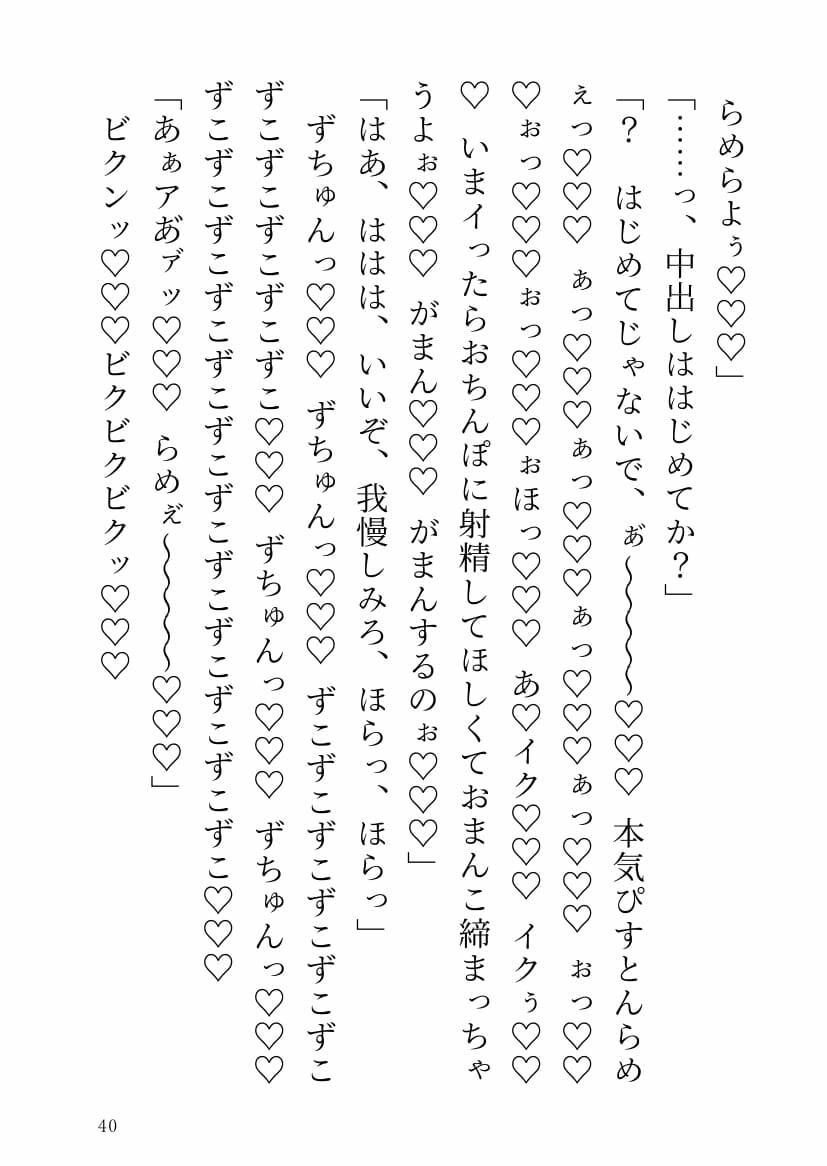 らめらよぅ♡♡♡」
「……っ、中出しははじめてか？」
「？　はじめてじゃないで、ぁ゙～～～～～♡♡♡　本気ぴすとんらめ
ぇっ♡♡♡　ぁっ♡♡♡ぁっ♡♡♡ぁっ♡♡♡ぁっ♡♡♡　ぉっ♡♡
♡ぉっ♡♡♡ぉっ♡♡♡ぉほっ♡♡♡　あ♡イク♡♡♡　イクぅ♡♡
♡　いまイったらおちんぽに射精してほしくておまんこ締まっちゃ
うよぉ♡♡♡　がまん♡♡♡　がまんするのぉ♡♡♡」
「はあ、ははは、いいぞ、我慢しみろ、ほらっ、ほらっ」
　ずちゅんっ♡♡♡　ずちゅんっ♡♡♡　ずこずこずこずこずこずこ
ずこずこずこずこずこ♡♡♡　ずちゅんっ♡♡♡　ずちゅんっ♡♡♡
ずこずこずこずこずこずこずこずこずこずこずこずこ♡♡♡
「あぁアあ゙ァ゙ッ♡♡♡　らめぇ゙～～～～～♡♡♡」
　ビクンッ♡♡♡ビクビクビクッ♡♡♡
40